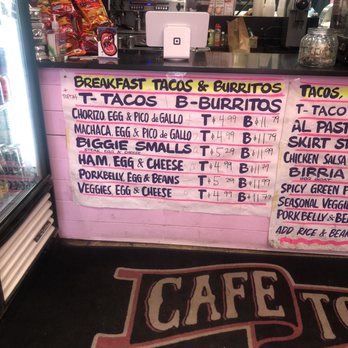 BREAKFAST TACOS & BURRITOS
T-TACOS B-BURRITOS
CHORIZO, EGG & PICO de GALLO T $4.99 B $11.79
MACHACA, EGG & PICO de GALLO T $4.99 B $11.79
BIGGIE SMALLS T $5.29 B $11.99
STEAK, EGG & CHEESE
HAM, EGG & CHEESE T $4.99 B $11.79
PORKBELLY, EGG & BEANS T $5.29 B $11.99
VEGGIES, EGG & CHEESE T $4.99 B $11.79
TACOS,
T-TACO
AL PAST
SKIRT ST
CHICKEN SALSA
BIRRIA
SPICY GREEN
SEASONAL VEGGIE
PORKBELLY & BEA
ADD RICE & BEAN
CAFE TO